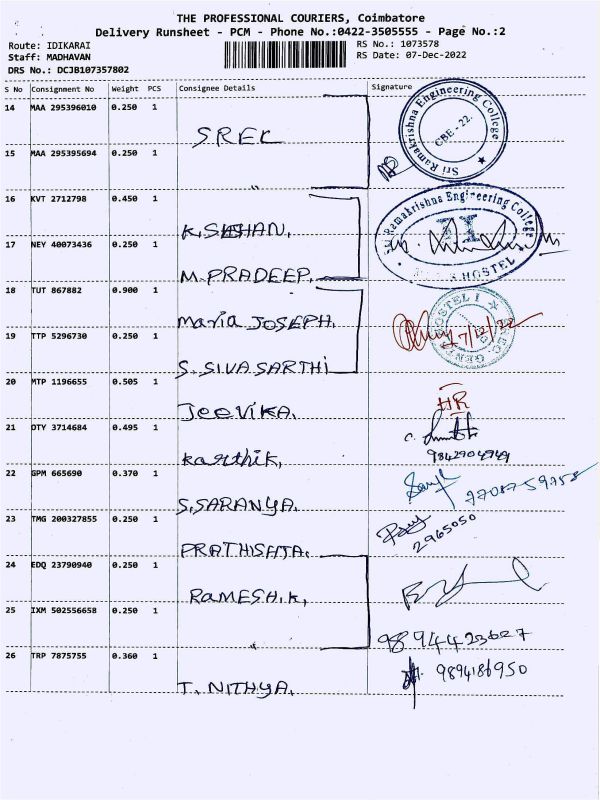 THE PROFESSIONAL COURIERS, Coimbatore
Delivery Runsheet - PCM - Phone No.:0422-3505555 - Page No.:2
Route: IDIKARAI RS No.: 1073578
Staff: MADHAVAN RS Date: 07-Dec-2022
DRS No.: DCJB107357802
S No Consignment No Weight PCS Consignee Details Signature
14 MAA 295396010 0.250 1 SREC
Sri Ramakrishna Engineering College
CBE - 22.
15 MAA 295395694 0.250 1 "
16 KVT 2712798 0.450 1
Sri Ramakrishna Engineering College
HOSTEL
17 NEY 40073436 0.250 1
M. PRADEEP.
18 TUT 867882 0.900 1 Maria JOSEPH.
HOSTEL I
7/12/22
19 TTP 5296730 0.250 1 S. SIVA SARTHI
20 MTP 1196655 0.505 1 Jeevika.
HR
21 OTY 3714684 0.495 1 Karthik.
9842904949
22 GPM 665690 0.370 1 S. SARANYA.
23 TMG 200327855 0.250 1
2965050
24 EDQ 23790940 0.250 1 RAMESH.K.
25 IXM 502556658 0.250 1 "
9894423627
26 TRP 7875755 0.360 1 T. NITHYA.
9894186950